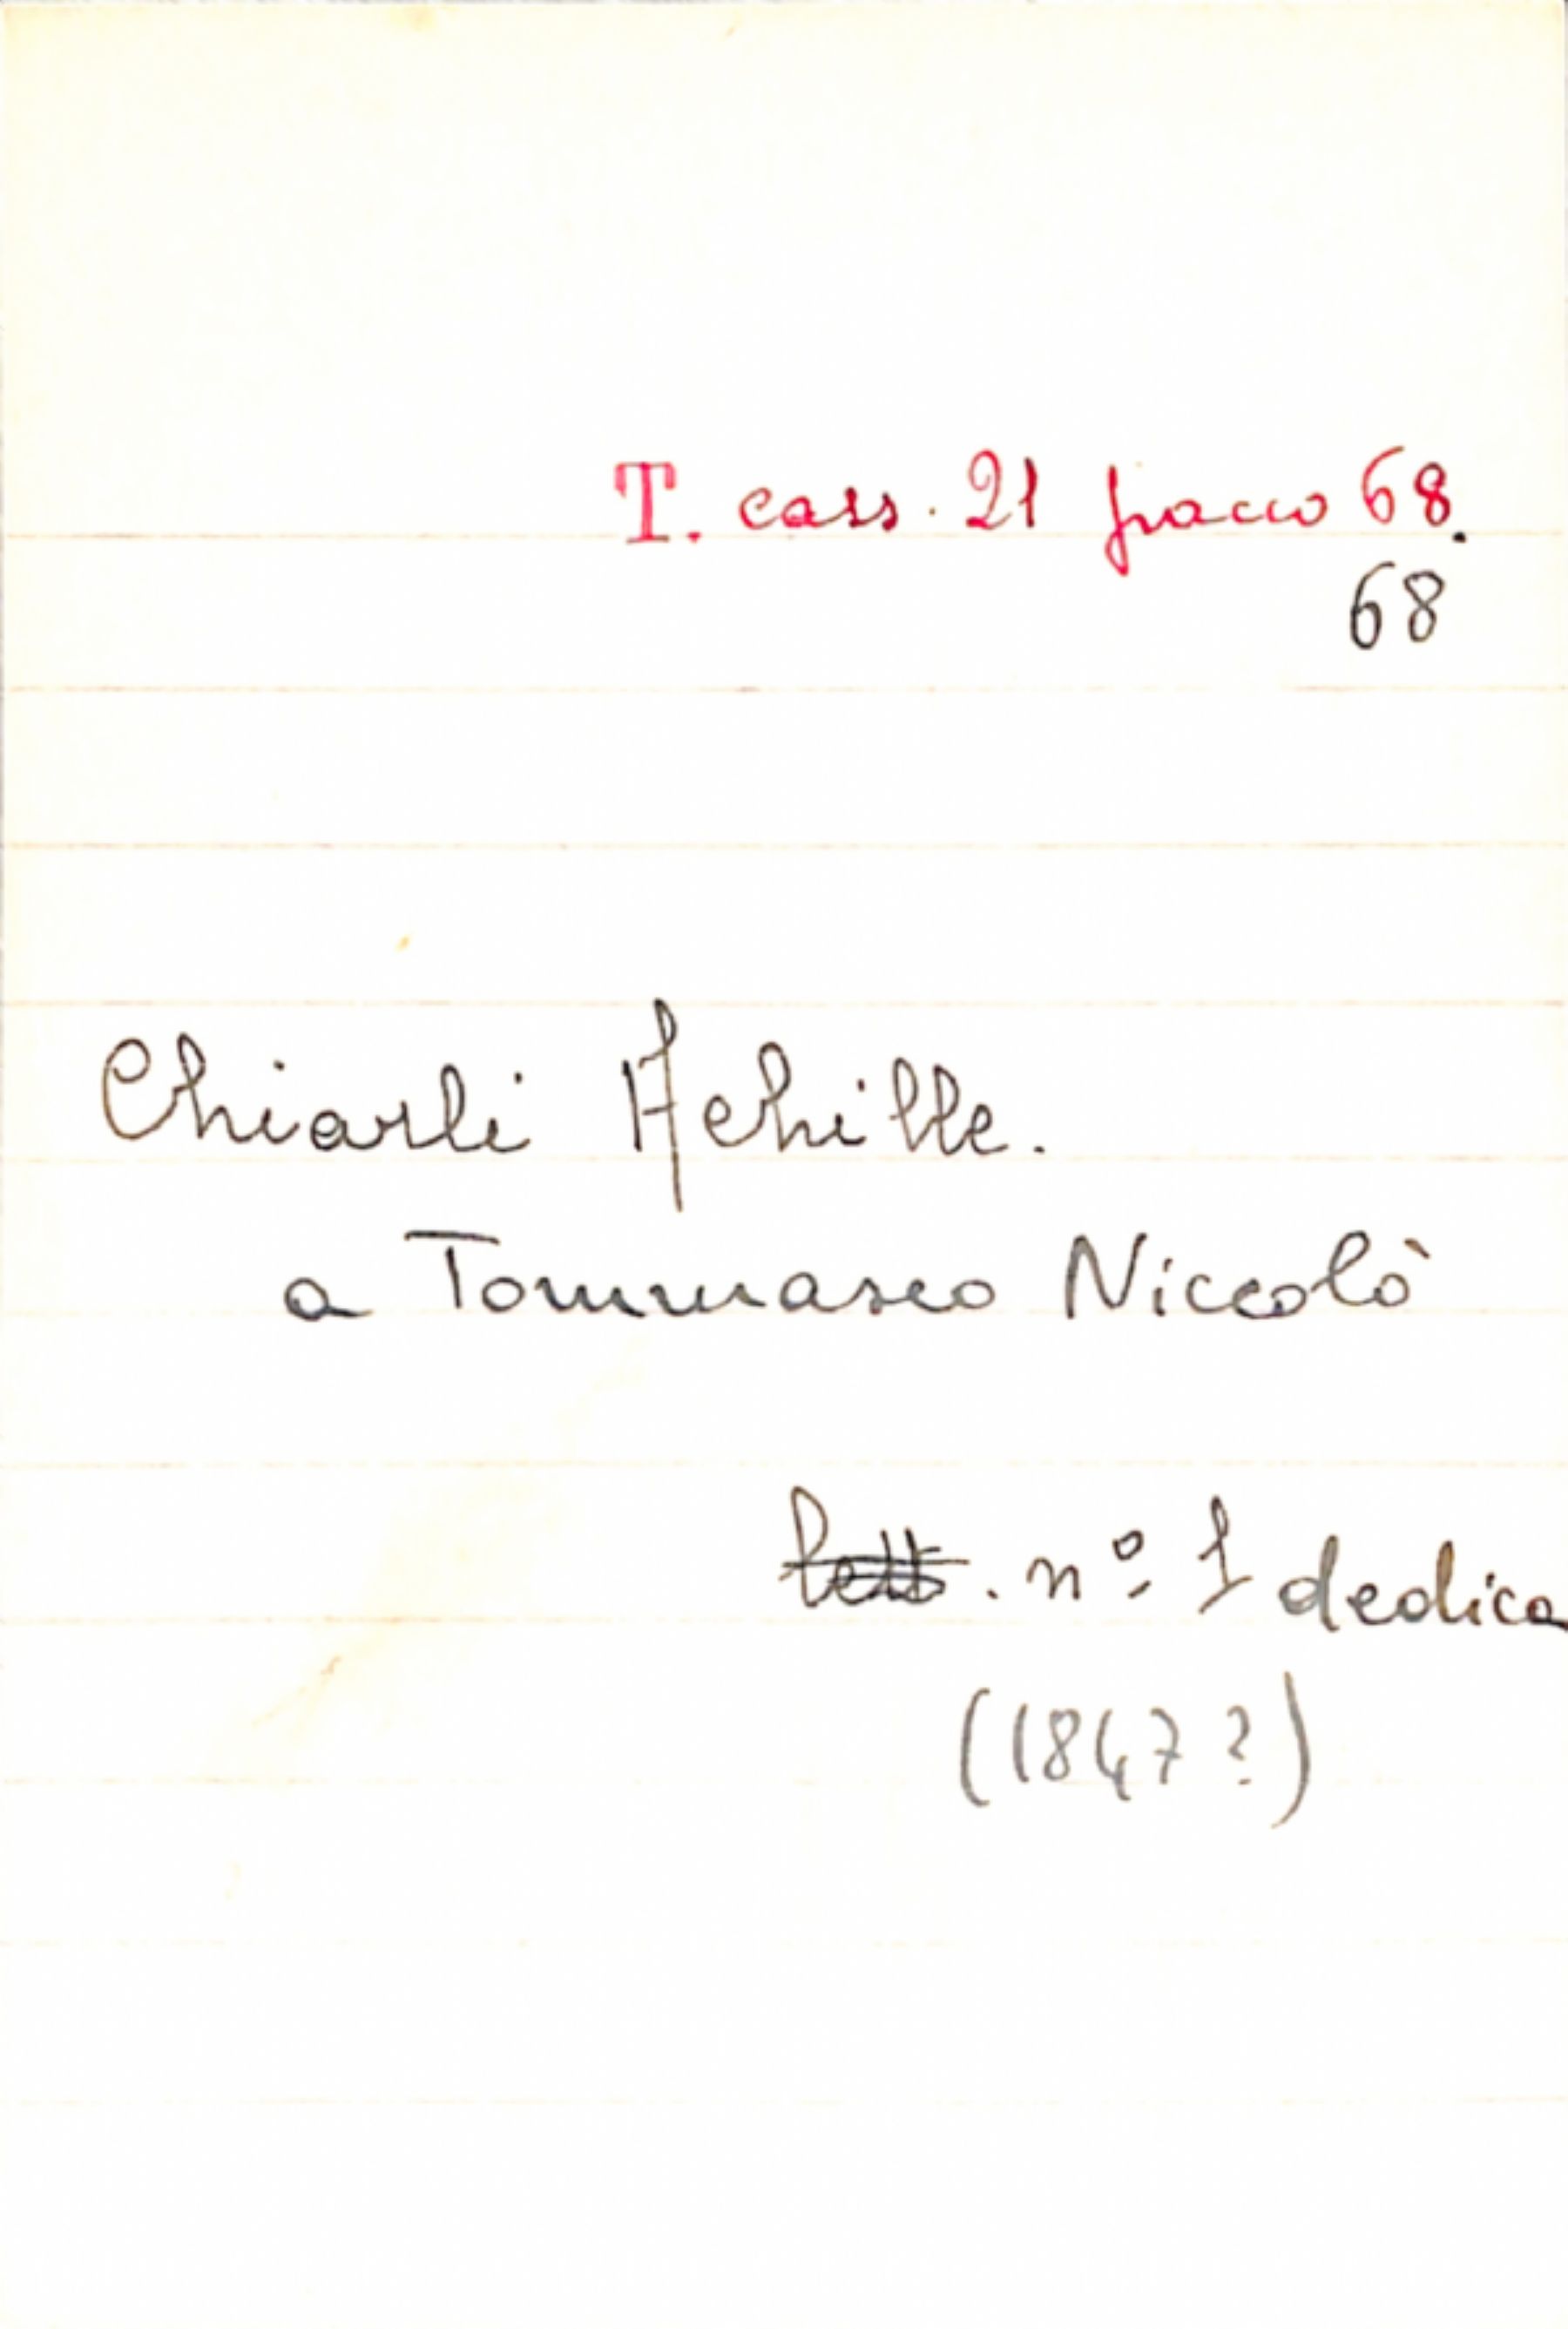 T. cass. 21 pacco 68.
68
Chiarli Achille.
a Tommaseo Niccolò
lett. nº 1 dedica
(1847?)